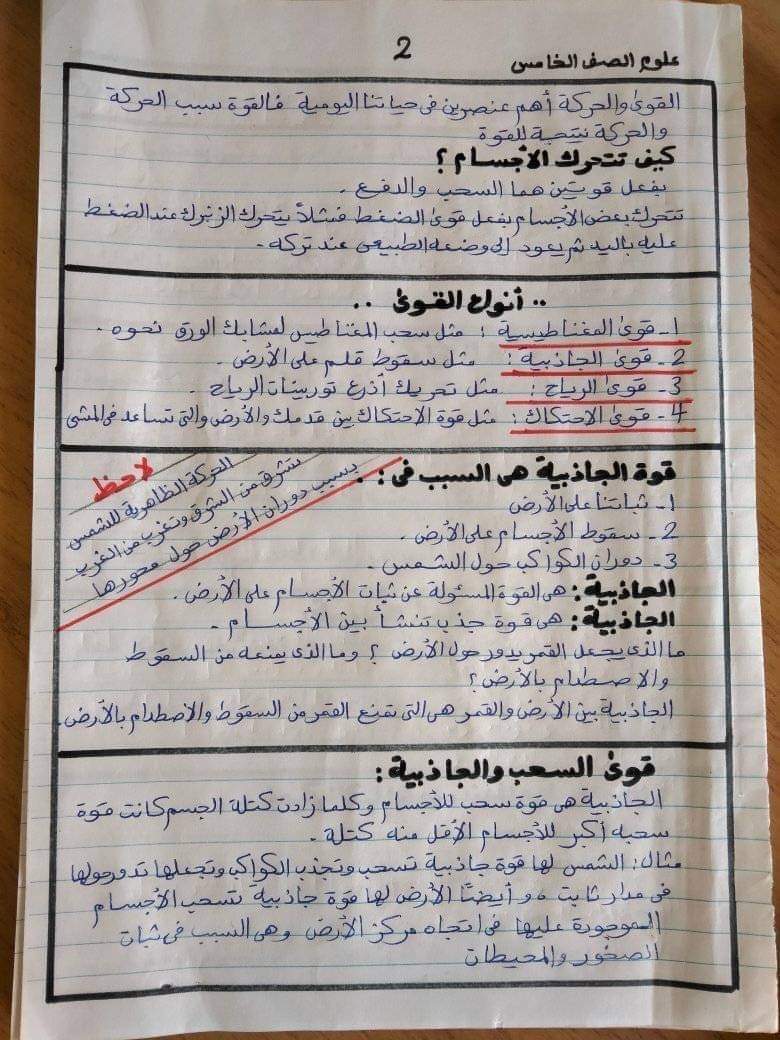 علوم الصف الخامس
2
القوى والحركة أهم عنصرين فى حياتنا اليومية فالقوة سبب الحركة
والحركة نتيجة للقوة
كيف تتحرك الأجسام ؟
بفعل قوتين هما السحب والدفع .
تتحرك بعض الأجسام بفعل قوى الضغط فمثلاً يتحرك الزنبرك عند الضغط
عليه باليد ثم يعود إلى وضعه الطبيعى عند تركه .
.. أنواع القوى ..
1- قوى المغناطيسية : مثل سحب المغناطيس لمشابك الورق نحوه .
2- قوى الجاذبية : مثل سقوط قلم على الأرض .
3- قوى الرياح : مثل تحريك أذرع توربينات الرياح .
4- قوى الاحتكاك : مثل قوة الاحتكاك بين قدمك والأرض والتى تساعد فى المشى
قوة الجاذبية هى السبب فى : .
1- ثباتنا على الأرض
2- سقوط الأجسام على الأرض .
3- دوران الكواكب حول الشمس .
لاحظ
الحركة الظاهرية للشمس
تشرق من الشرق وتغرب من الغرب
بسبب دوران الأرض حول محورها
الجاذبية : هى القوة المسئولة عن ثبات الأجسام على الأرض .
الجاذبية : هى قوة جذب تنشأ بين الأجسام .
ما الذى يجعل القمر يدور حول الأرض ؟ وما الذى يمنعه من السقوط
والاصطدام بالأرض ؟
الجاذبية بين الأرض والقمر هى التى تمنع القمر من السقوط والاصطدام بالأرض .
قوى السحب والجاذبية :
الجاذبية هى قوة سحب للأجسام وكلما زادت كتلة الجسم كانت قوة
سحبه أكبر للأجسام الأقل منه كتلة .
مثال : الشمس لها قوة جاذبية تسحب وتجذب الكواكب وتجعلها تدور حولها
فى مدار ثابت ، وأيضًا الأرض لها قوة جاذبية تسحب الأجسام
الموجودة عليها فى اتجاه مركز الأرض وهى السبب فى ثبات
الصخور والمحيطات